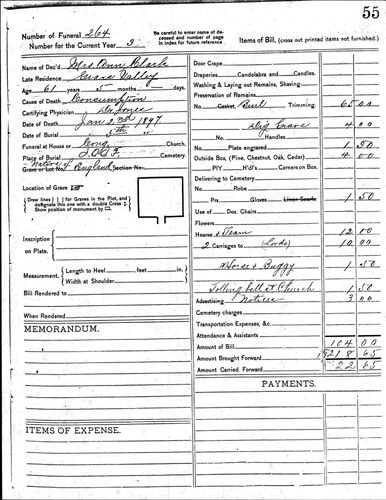 55
Number of Funeral 264
Number for the Current Year 3
Be careful to enter name of deceased and number of page in index for future reference
Items of Bill, (cross out printed items not furnished.)
Name of Dec'd Mrs Ann Clark
Late Residence Grass Valley
Age 61 years 5 months days.
Cause of Death Consumption
Certifying Physician Dr Jones
Date of Death Jan 2nd 1897
Date of Burial " 5th "
Funeral at House or Cong Church.
Place of Burial I.O.O.F. Cemetery.
Native of England
Grave or Lot No. Section No.
Location of Grave
Draw lines for Graves in the Plot, and designate this one with a double Cross
Show position of monument by
Inscription on Plate.
Measurement. Length to Heel feet in.
Width at Shoulder
Bill Rendered to
When Rendered
MEMORANDUM.
ITEMS OF EXPENSE.
Door Crape
Draperies, Candelabra and Candles.
Washing & Laying out Remains, Shaving
Preservation of Remains.
No. Casket Burl Trimming. 65 00
Dig Grave 4 00
No. Handles
Plate engraved 1 50
Outside Box (Pine, Chestnut, Oak, Cedar) 4 00
PlY H'dl's Corners on Box.
Delivering to Cemetery
No. Robe
Prs Gloves Linen Scarfs 1 50
Use of Doz. Chairs
Flowers
Hearse & Team 12 00
2 Carriages to (Lords) 10 00
Horse & Buggy 1 50
Tolling bell at Church 1 50
Advertising Notices 3 00
Cemetery charges
Transportation Expenses, &c
Attendance & Assistants
Amount of Bill 104 00
Amount Brought Forward
Amount Carried Forward
PAYMENTS.